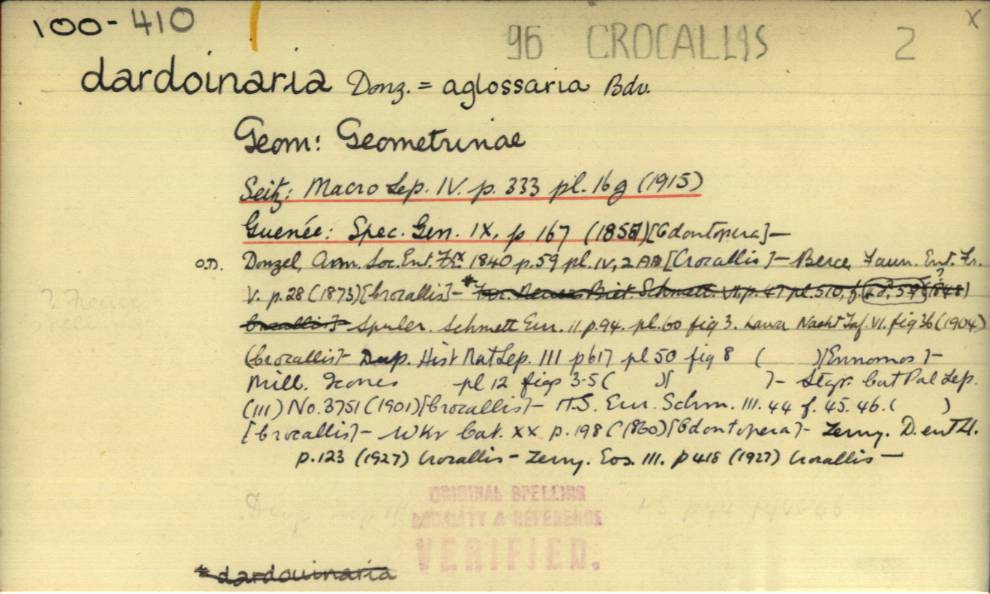 100-410
96 CROCALLIS 2 x
dardoinaria Donz. = aglossaria Bdv.
Geom: Geometrinae
Seitz: Macro Lep. IV. p. 333 pl. 16g (1915)
Guenée: Spec. Gen. IX, p 167 (1857) [Odontopera] —
O.D. Donzel, Ann. Soc. Ent. Fr. 1840 p. 59 pl. IV, 2 AB [Crocallis] — Berce, Faun. Ent. Fr.
V. p. 28 (1873) [Crocallis] — * Schmett. VI. p. 47 pl. 510, f.
Crocallis] — Spuler. Schmett Eur. II p. 94. pl. 60 fig 3. Nacht Taf. VI. fig 36 (1904)
(Crocallis) — Dup. Hist Nat Lep. III p 617 pl 50 fig 8 ( ) [Ennomos] —
Mill. Icones pl 12 figs 3-5 ( ) [ ] — Stgr. Cat Pal Lep.
(III) No. 3751 (1901) [Crocallis] — H.S. Eur. Schm. III. 44 f. 45. 46. ( )
[Crocallis] — Wkr Cat. XX p. 198 (1860) [Odontopera] — Zerny. D. ent Z.
p. 123 (1927) Crocallis — Zerny. Eos. III. p 418 (1927) Crocallis —
ORIGINAL SPELLING
LOCALITY & REFERENCE
VERIFIED.
* dardouinaria